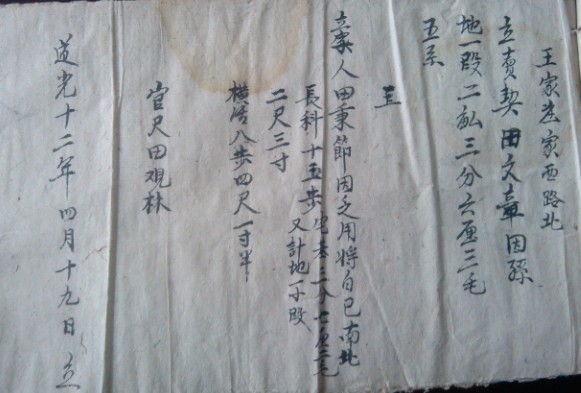 王家老家西路北
立賣契田文章因孫
地一段二畝三分六厘三毛
五系
立
立家人田秉節因乏用將自己南北
長科十五步宅基三分七厘二毛
又計地一小段
二尺三寸
橫活八步四尺一寸半
官尺田观林
道光十二年四月十九日立